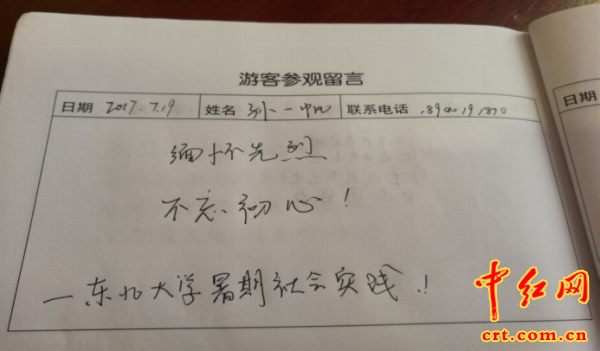 游客参观留言
日期 2017.7.19 姓名 孙一 联系电话
日期
缅怀先烈
不忘初心！
—东北大学暑期社会实践！
中红网
crt.com.cn